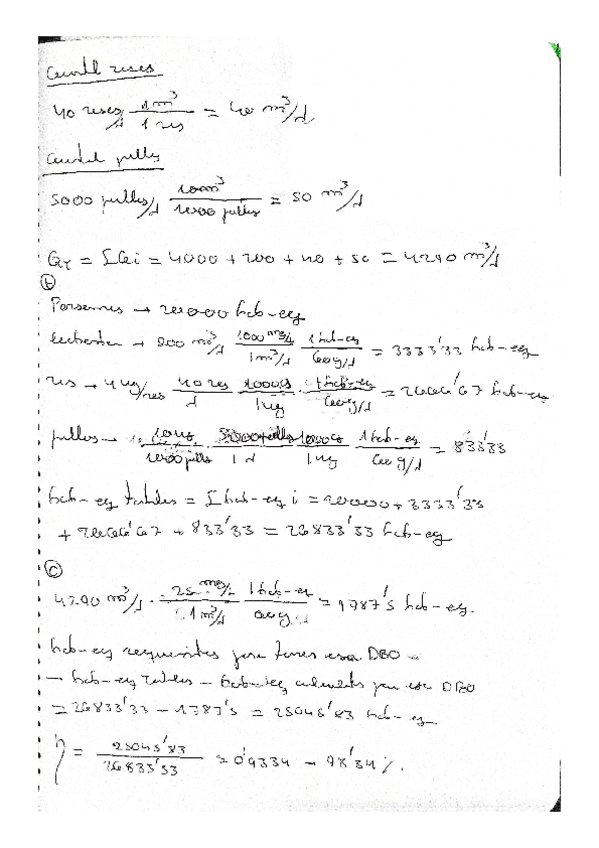 Caudal reses
40 reses/d 1m³/1 res = 40 m³/d
Caudal pollos
5000 pollos/d 10m³/1000 pollos = 50 m³/d
QT = ΣQi = 4000 + 200 + 40 + 50 = 4290 m³/d
b
Personas → 20000 hab-eq
200 m³/d 1000 mg/l / 1m³/d 1 hab-eq/60g/d = 3333'33 hab-eq
res → 4 kg/res 40 res/d 1000g/1kg 1 hab-eq/60g/d = 2666'67 hab-eq
pollos → 10kg/1000 pollos 5000 pollos/1 d 1000g/1kg 1 hab-eq/60 g/d = 833'33
hab-eq totales = Σ hab-eq i = 20000 + 3333'33
+ 2666'67 + 833'33 = 26833'33 hab-eq
c
4290 m³/d · 25 mg/l / 1 m³/d 1 hab-eq/60g = 1787'5 hab-eq.
hab-eq para tener esa DBO =
= hab-eq totales - hab-eq para esa DBO
= 26833'33 - 1787'5 = 25045'83 hab-eq
η = 25045'83/26833'33 = 0'9334 → 98'34 %.